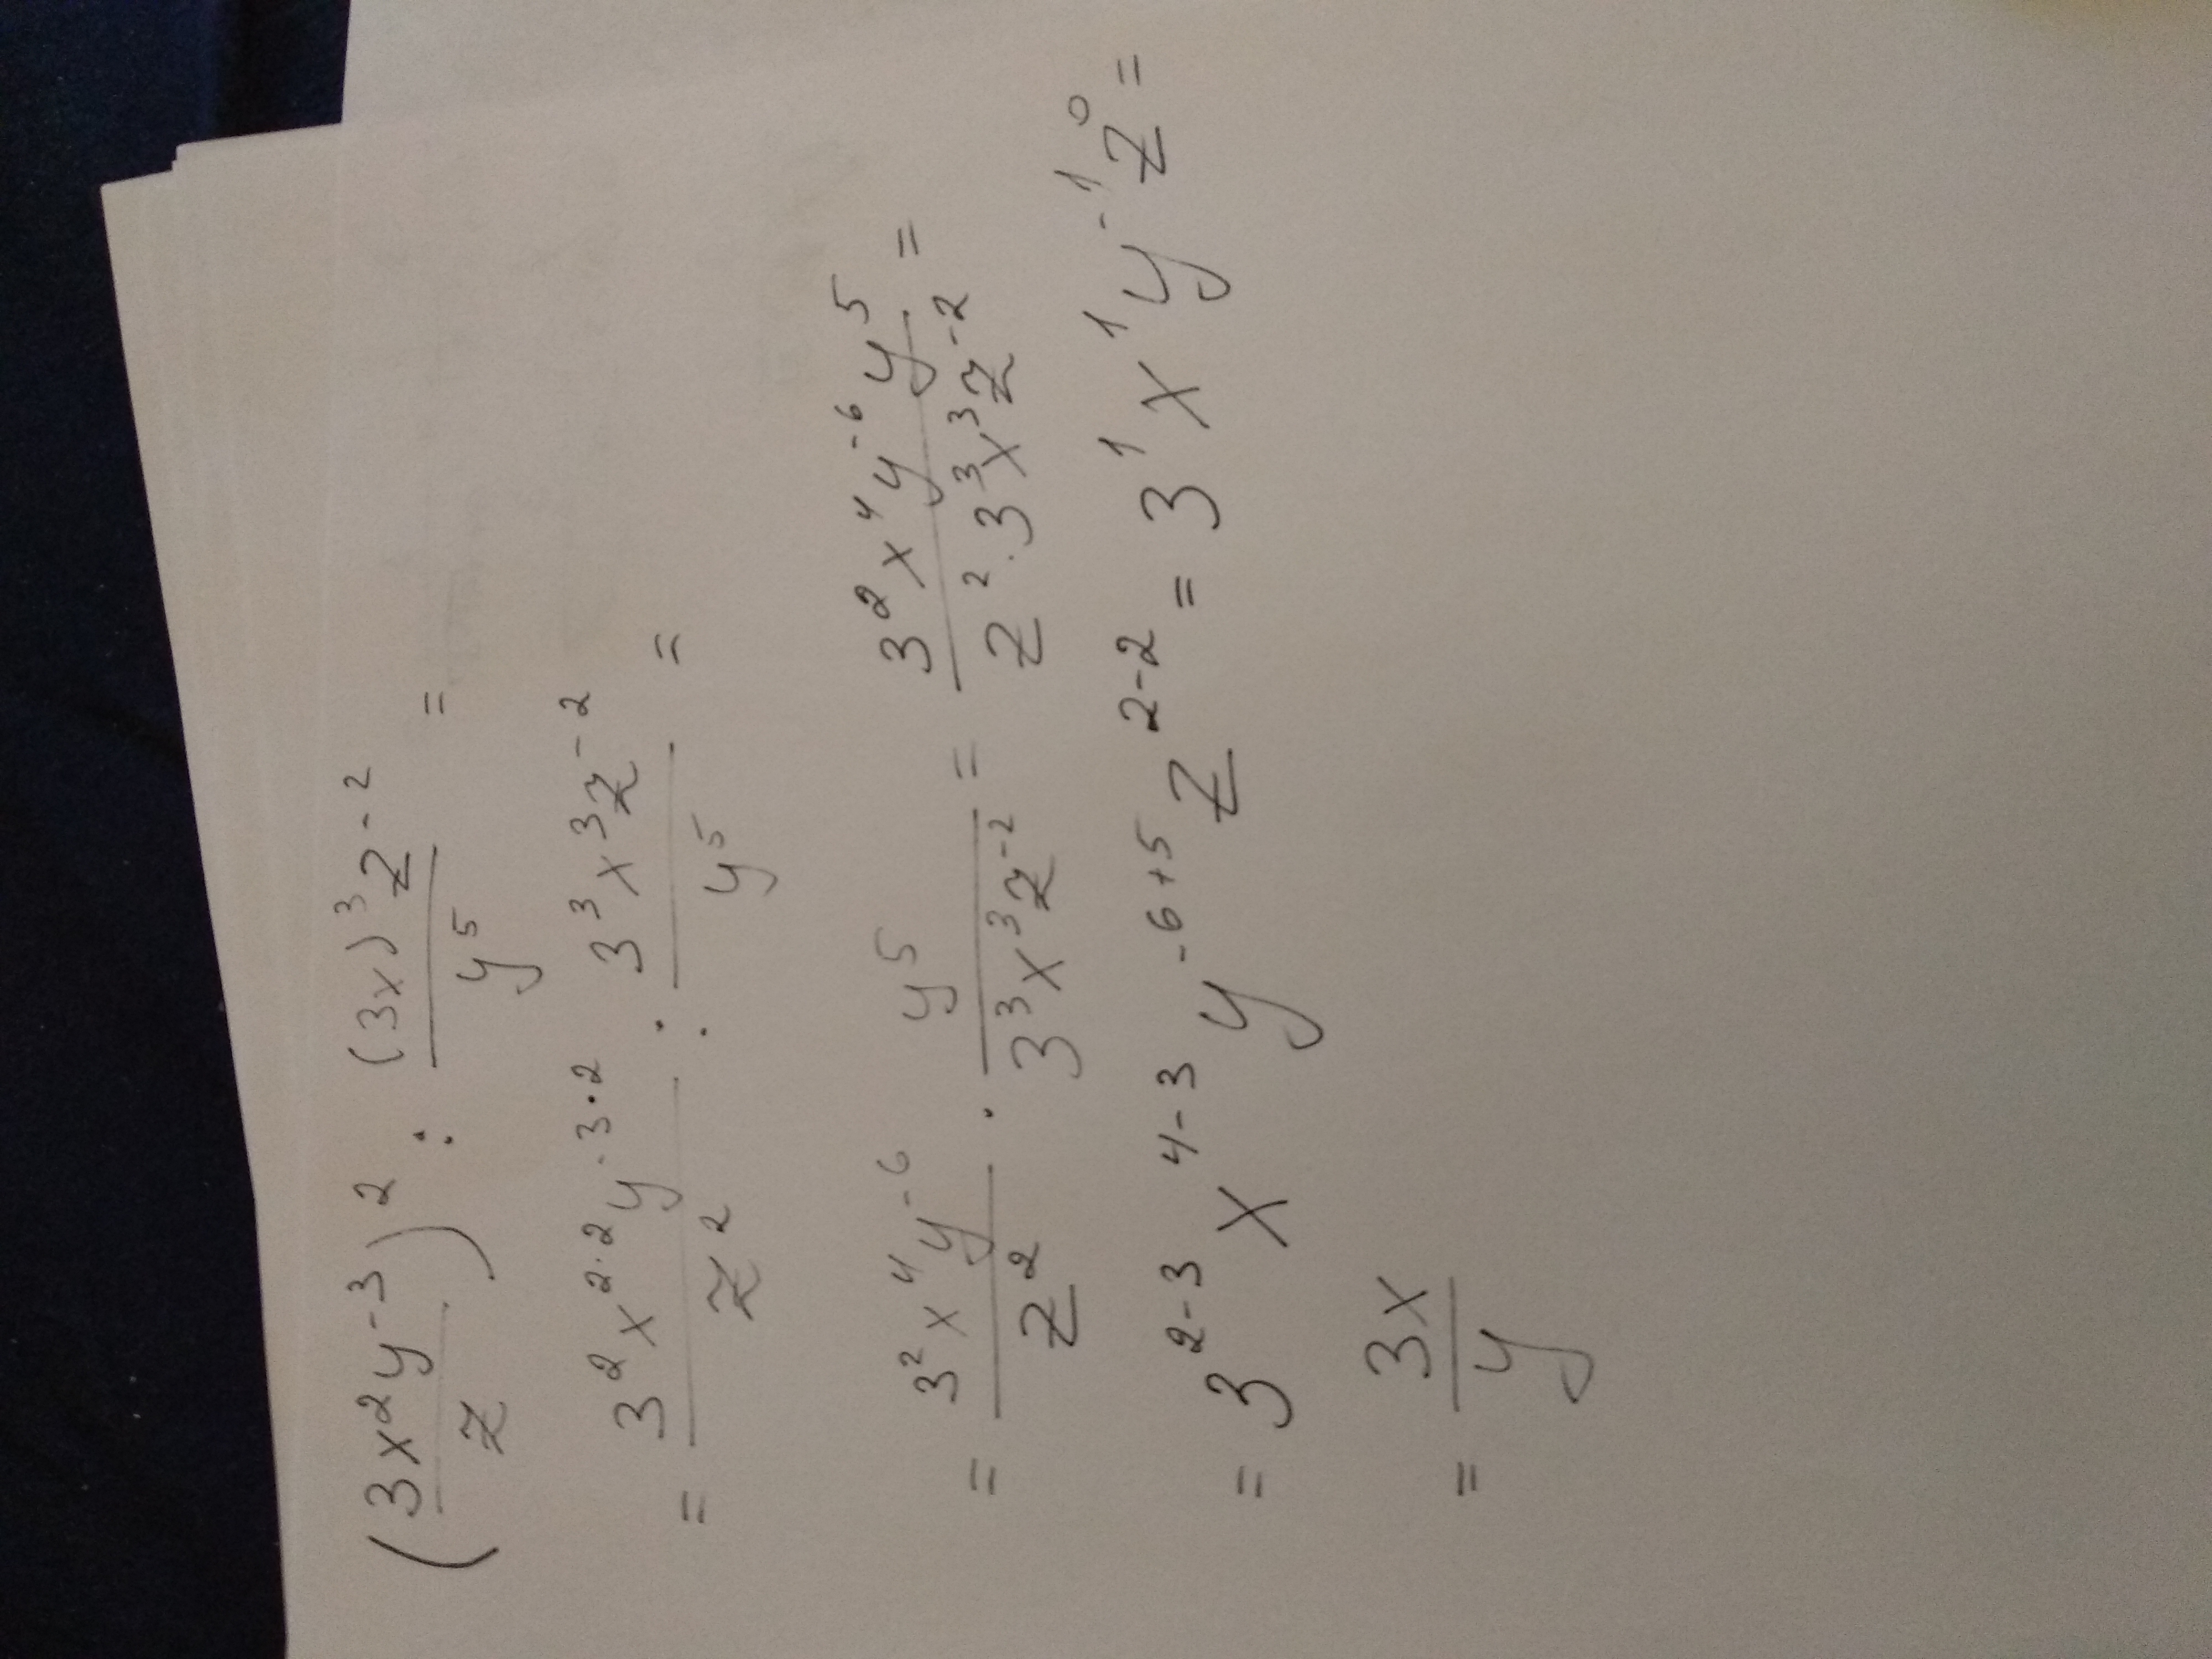 (3x²y⁻³/z)² : (3x)³z⁻²/y⁵ =
= 3²x²·²y⁻³·²/z² : 3³x³z⁻²/y⁵ =
= 3²x⁴y⁻⁶/z² · y⁵/3³x³z⁻² = 3²x⁴y⁻⁶y⁵/z²·3³x³z⁻² =
= 3²⁻³ x⁴⁻³ y⁻⁶⁺⁵ z²⁻² = 3¹x¹y⁻¹z⁰ =
= 3x/y